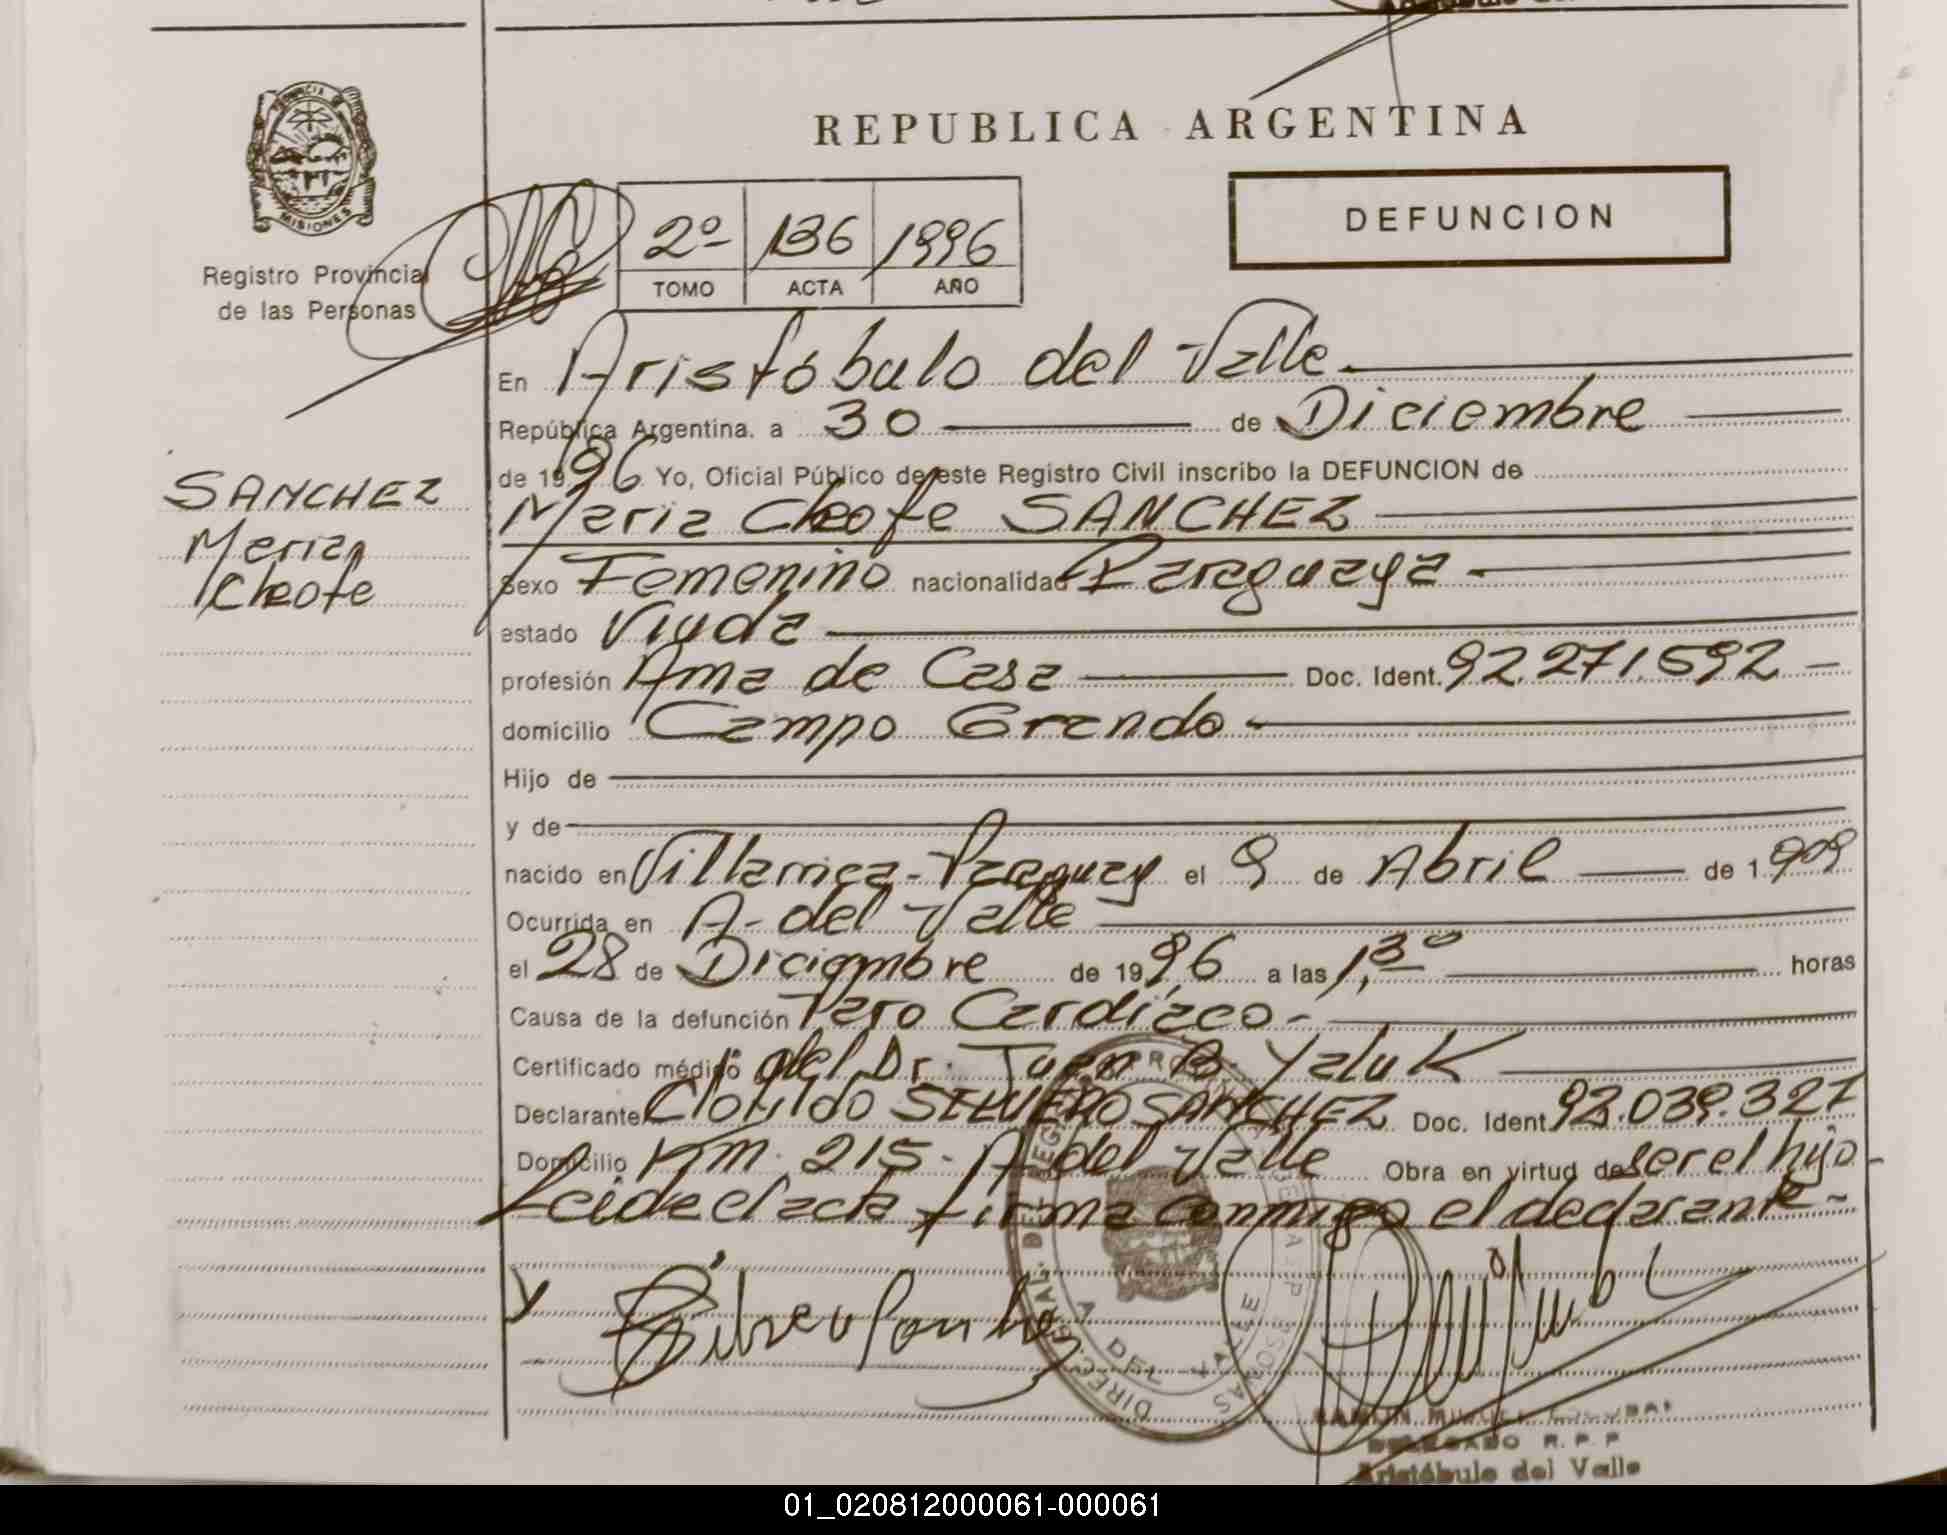 REPUBLICA ARGENTINA
PROVINCIA DE
MISIONES
Registro Provincial
de las Personas
2º 136 1996
TOMO ACTA AÑO
DEFUNCION
En Aristóbulo del Valle
República Argentina. a 30 de Diciembre
de 1996 Yo, Oficial Público de este Registro Civil inscribo la DEFUNCION de
SANCHEZ
Maria
Cleofe
Maria Cleofe SANCHEZ
Sexo Femenino nacionalidad Paraguaya
estado Viuda
profesión Ama de Casa Doc. Ident. 92.271.592
domicilio Campo Grande
Hijo de
y de
nacido en Villarrica - Paraguay el 9 de Abril de 1909
Ocurrida en A. del Valle
el 28 de Diciembre de 1996 a las 1,30 horas
Causa de la defunción Paro Cardíaco
Certificado médico del Dr. Juan B. Yaluk
Declarante Clotildo SILVERO SANCHEZ Doc. Ident. 93.039.327
Domicilio Km. 215 - A. del Valle Obra en virtud de ser el hijo -
Leida el acta firma conmigo el declarante -
DIREC. GRAL. DEL REGISTRO PROVINCIAL DE LAS PERSONAS
A DEL VALLE
RAMON
DELEGADO R. P. P.
Aristóbulo del Valle
01_020812000061-000061